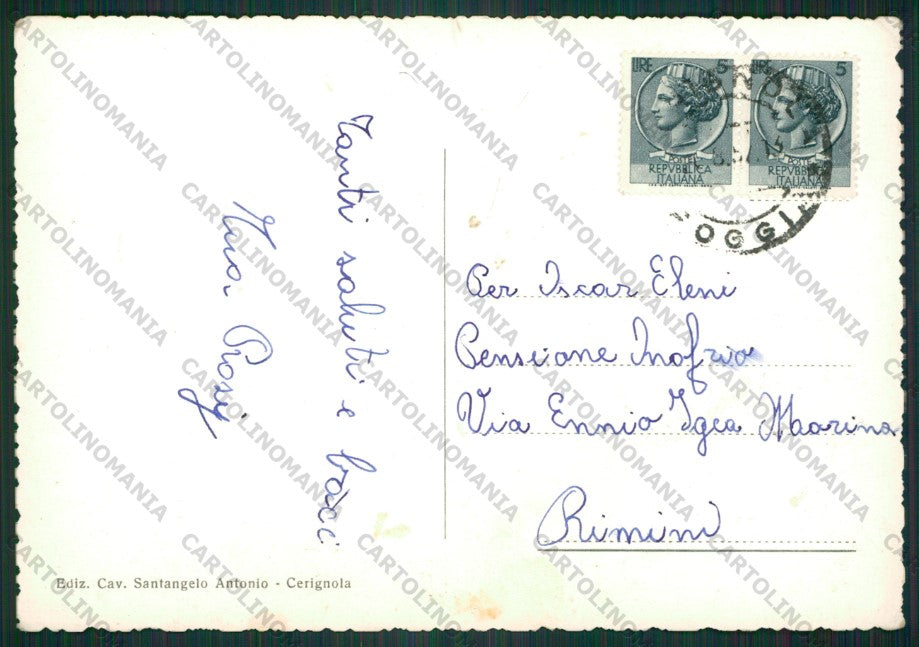 Tanti saluti e bacci
Rosy
LIRE 5
POSTE
REPVBBLICA
ITALIANA
LIRE 5
POSTE
REPVBBLICA
ITALIANA
OGGI
Per Iscar Eleni
Pensione Inofrio
Via Ennio Igea Maarina
Rimini
Ediz. Cav. Santangelo Antonio - Cerignola
CARTOLINOMANIA